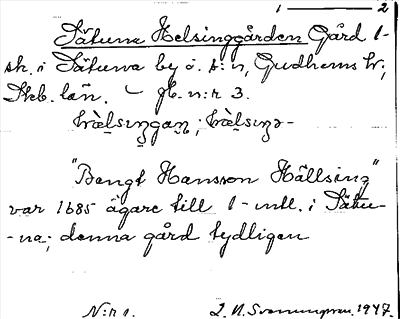 1 — 2
Sätuna Helsinggården Gård 1-
sk. i Sätuna by ö. s:n, Gudhems hr,
Skb. län. – jb. n:r 3.
hœ̀lsiŋgaɳ; hœ̀lsiŋ-
"Bengt Hansson Hällsing"
var 1685 ägare till 1-mtl. i Sätu-
-na; denna gård tydligen
N:r 1.
1947.